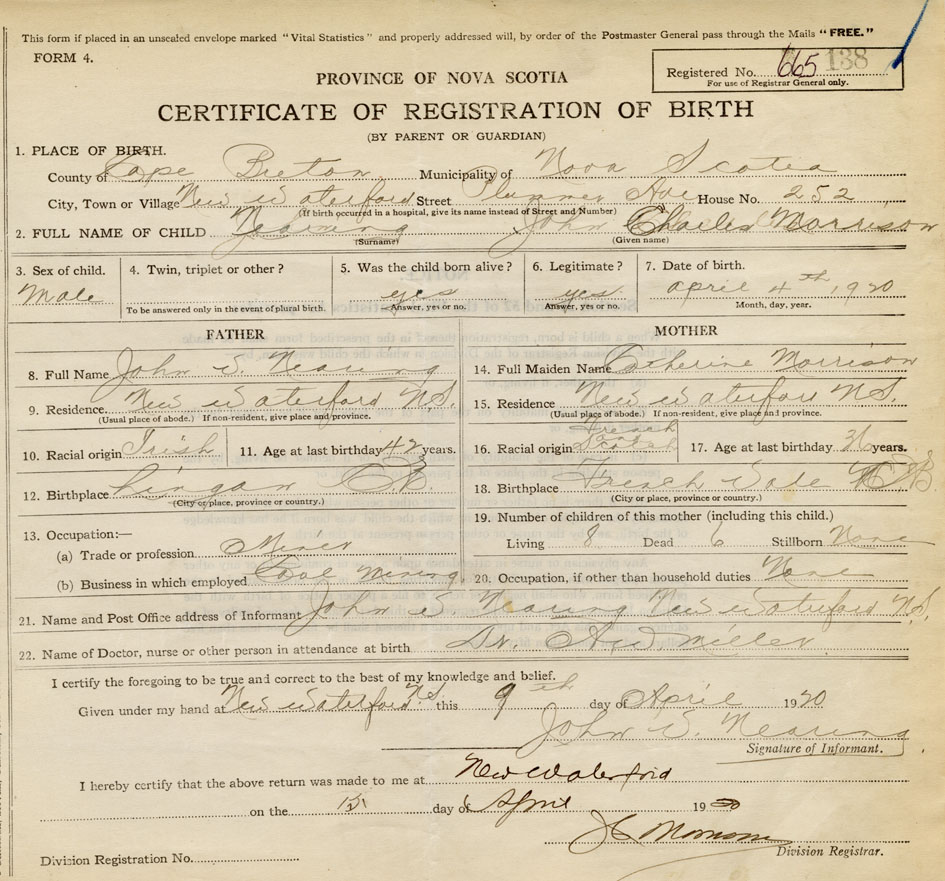 This form if placed in an unsealed envelope marked "Vital Statistics" and properly addressed will, by order of the Postmaster General pass through the Mails "FREE."
FORM 4.
Registered No. 665 138
For use of Registrar General only.
PROVINCE OF NOVA SCOTIA
CERTIFICATE OF REGISTRATION OF BIRTH
(BY PARENT OR GUARDIAN)
1. PLACE OF BIRTH.
County of Cape Breton Municipality of Nova Scotia
City, Town or Village New Waterford Street Plummer Ave House No. 252
(If birth occurred in a hospital, give its name instead of Street and Number)
2. FULL NAME OF CHILD Nearing John Charles Morrison
(Surname) (Given name)
3. Sex of child. 4. Twin, triplet or other? 5. Was the child born alive? 6. Legitimate? 7. Date of birth.
Male yes yes April 4th, 1920
To be answered only in the event of plural birth. Answer, yes or no. Answer, yes or no. Month, day, year.
FATHER
8. Full Name John S. Nearing
9. Residence New Waterford N.S.
(Usual place of abode.) If non-resident, give place and province.
10. Racial origin Irish 11. Age at last birthday 42 years.
12. Birthplace Lingan C.B.
(City or place, province or country.)
13. Occupation:—
(a) Trade or profession Miner
(b) Business in which employed Coal Mining
MOTHER
14. Full Maiden Name Catherine Morrison
15. Residence New Waterford N.S.
(Usual place of abode.) If non-resident, give place and province.
16. Racial origin French Scotch 17. Age at last birthday 36 years.
18. Birthplace French Vale C.B.
(City or place, province or country.)
19. Number of children of this mother (including this child.)
Living 8 Dead 6 Stillborn None
20. Occupation, if other than household duties None
21. Name and Post Office address of Informant John S. Nearing New Waterford N.S.
22. Name of Doctor, nurse or other person in attendance at birth Dr. Miller
I certify the foregoing to be true and correct to the best of my knowledge and belief.
Given under my hand at New Waterford N.S. this 9th day of April 1920
John S. Nearing
Signature of Informant.
I hereby certify that the above return was made to me at New Waterford
on the day of April 1920
Division Registrar.
Division Registration No.